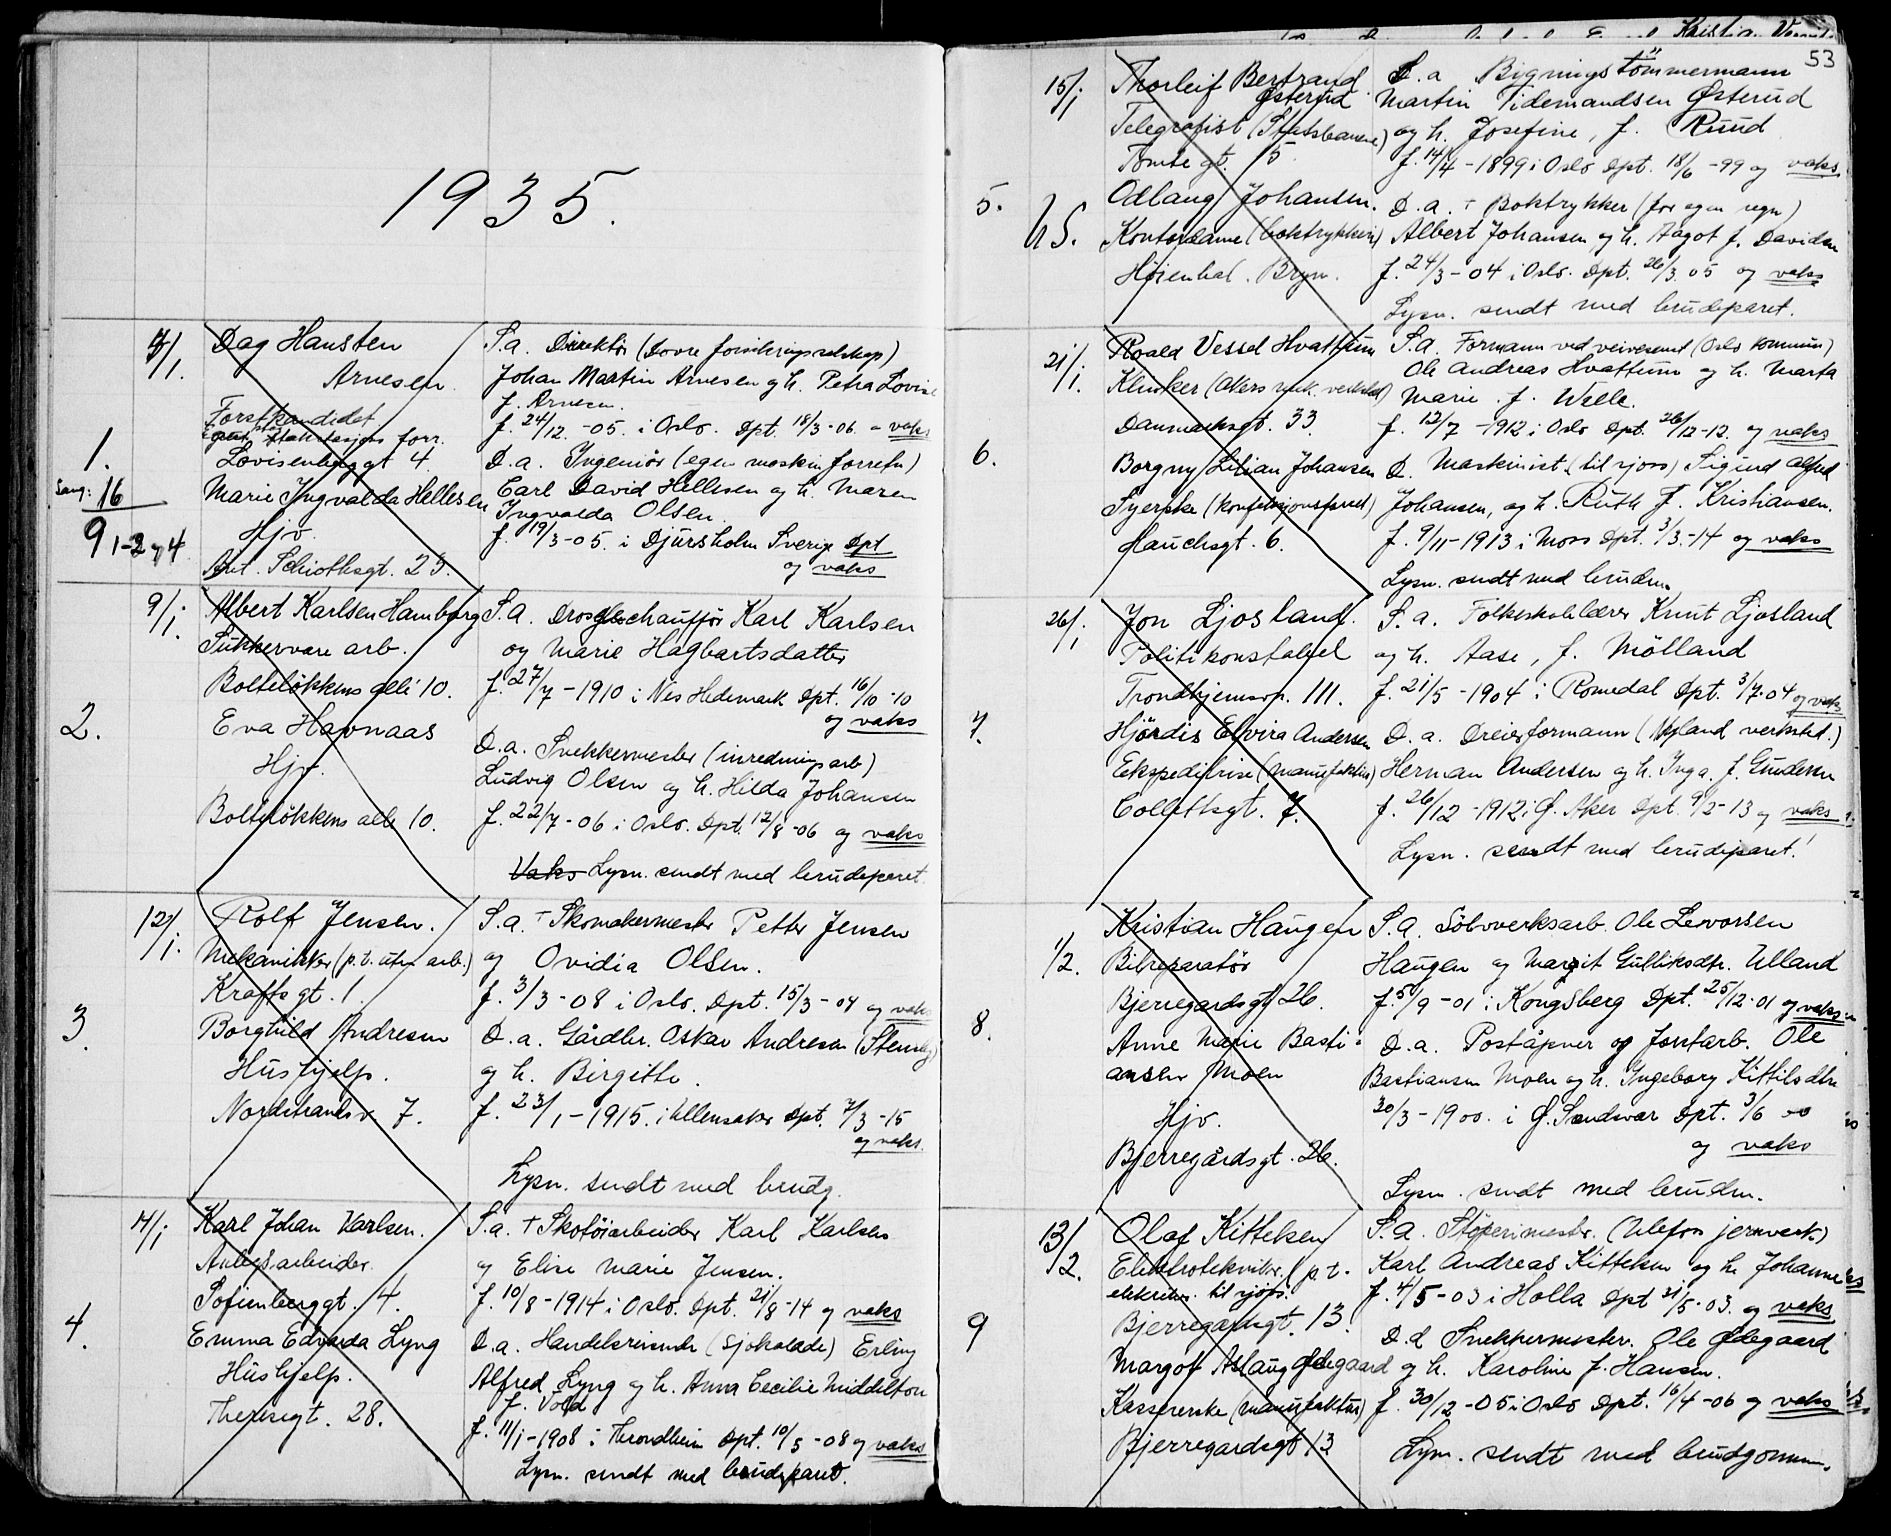 1935.
7/1.
Dag Hansten
Arnesen
Forstkandidat
forr.
Lovisenberggt 4.
1.
Sang: 16
9 1-2 og 4
Marie Ingvalda Hellesen
Hjv.
Ant. Schiøthsgt. 23.
S.a. Direktør (Dovre forsikringsselskap)
Johan Martin Arnesen og h. Petra Lovise
f. Arnesen.
f. 24/12. -05. i Oslo. Dpt. 18/3 -06 - vaks
D.a. Ingeniør (egen maskinforretn)
Carl David Hellesen og h. Maren
Ingvalda Olsen.
f. 19/3 -05. i Djursholm Sverige Dpt
og vaks
9/1.
Albert Karlsen Hamborg
Sukkervare arb.
Bolteløkkens alle 10.
2.
Eva Havnaas
Hjv.
Bolteløkkens alle 10.
S.a. Drosjechauffør Karl Karlsen
og Marie Hagbartsdatter
f. 27/7 - 1910 i Nes Hedemark Dpt. 16/10 -10
og vaks
D.a. Snekkermester (inredningsarb)
Ludvig Olsen og h. Hilda Johansen
f. 22/7 -06 i Oslo. Dpt. 12/8 -06 og vaks
Vaks Lysn. sendt med brudeparet.
12/1.
Rolf Jensen.
Mekaniker (p.t. uten arb.)
Kraftsgt. 1.
3.
Borghild Andresen
Hushjelp.
Nordstrandsv 7.
S.a. † Skomakermester Petter Jensen
og Ovidia Olsen.
f. 3/3 -08 i Oslo. Dpt. 15/3 -04 og vaks
D.a. Gårdbr. Oskar Andresen (Stensby)
og h. Birgitte.
f. 23/1 - 1915. i Ullensaker Dpt. 7/3 -15
og vaks.
Lysn. sendt med brudg.
14/1
Karl Johan Karlsen.
Anlegsarbeider.
Sofienberggt. 4.
4.
Emma Edvarda Lyng
Hushjelp.
Theresegt. 28.
S.a. † Skotøiarbeider Karl Karlsen
og Elise Marie Jensen.
f. 10/8 - 1914 i Oslo. Dpt. 21/8 -14 og vaks
D.a. Handelsreisende (sjokolade) Erling
Alfred Lyng og h. Anna Cecilie Middelton
f. Vold
f. 11/1 - 1908 i Trondheim Dpt. 10/5 -08 og vaks
Lysn. sendt med brudeparet.
Kristia
53
15/1
Thorleif Bertrand
Østerud
Telegrafist (Statsbanene)
Tomtegt. 15.
5.
hS.
Odlaug Johansen.
Kontordame (boktrykkeri)
Høienhal. Bryn.
S.a. Bygnings tömmermann
Martin Tidemandsen Østerud
og h. Josefine, f. Ruud
f. 14/4 - 1899 i Oslo Dpt. 18/6 -99 og vaks
D.a. † Boktrykker (for egen regn)
Albert Johansen og h. Aagot f. Davidsen
f. 24/3 -04 i Oslo. Dpt. 26/3. 05 og vaks
Lysn. sendt med brudeparet.
21/1.
Roald Vessel Hvattum
Klinker (Akers mek. verksted)
Danmarksgt. 33.
6.
Borgny Lilian Johansen
Syerske (konfeksjonsforretn)
Hauchsgt. 6.
S.a. Formann ved veivesenet (Oslo kommune)
Ole Andreas Hvattum og h. Marta
Marie f. Welle.
f. 12/7 - 1912 i Oslo Dpt. 26/12 -12. og vaks
D. Maskinist (til sjøss) Sigurd Alfred
Johansen, og h. Ruth f. Kristiansen.
f. 9/11 - 1913 i Moss Dpt. 3/3. -14 og vaks
Lysn. sendt med bruden.
26/1.
Jon Ljosland.
Politikonstabel
Trondhjemsv. 111.
7.
Hjördis Elvira Andersen
Ekspeditrise (manufaktur)
Collettsgt. 7.
S.a. Folkeskolelærer Knut Ljosland
og h. Aase, f. Mölland
f. 21/5 - 1904 i Romedal Dpt. 3/7 -04 og vaks
D.a. Dreierformann (Myland verksted.)
Herman Andersen og h. Inga f. Gundersen
f. 26/12 - 1912 i Ø. Aker Dpt. 9/2 -13 og vaks
Lysn. sendt med brudeparet!
1/2.
Kristian Haugen
Bilreparatør
Bjerregårdsgt 26.
8.
Anne Marie Basti-
ansen Moen
Hjv.
Bjerregårdsgt. 26.
S.a. Sølvverksarb. Ole Levorsen
Haugen og Margit Gulliksdtr. Ulland
f. 5/9 -01 i Kongsberg Dpt. 25/12 -01 og vaks
D.a. Poståpner og forstarb. Ole
Bastiansen Moen og h. Ingeborg Kittilsdtr
30/3 - 1900. i Ø. Sandsvær Dpt. 3/6 -00
og vaks
Lysn. sendt med bruden.
13/2.
Olaf Kittelsen
Elektrotekniker (p.t.
elektriker til sjøss.
Bjerregårdsgt. 13.
9
Margot Aslaug Ødegaard
Kassererske (manufaktur)
Bjerregardsgt 13
S.a. Støperimester. (Ulefos jernverk.)
Karl Andreas Kittelsen og h. Johanne
f. 4/5 -03 i Holla Dpt 31/5 -03. og vaks
D.a Snekkermester. Ole Ødegaard
og h. Karoline f. Hansen.
f. 30/12 -05 i Oslo Dpt. 16/4 -06 og vaks
Lysn. sendt med brudgommen.